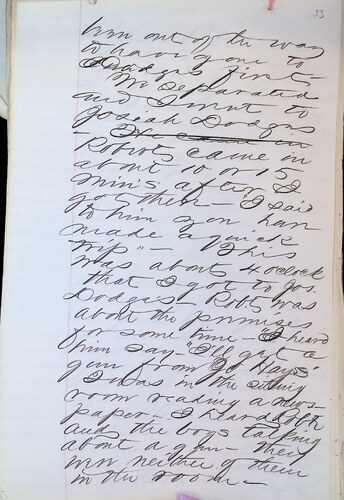 33
him out of the way
to have gone to
Dodges first -
We separated
and I went to
Joseah Dodges
- He came in
Roberts came in
about 10 or 15
min's after I
got there - "I said
to him you have
made a quick
trip" - This
was about 4 oclock
that I got to Jos.
Dodges - Robts was
about the premises
for some time - I heard
him say - "I'll get a
gun from Jo Hays"
I was in the sitting
room reading a news-
paper - I heard Robts
and the boys talking
about a gun - They
were neither of them
in the room -